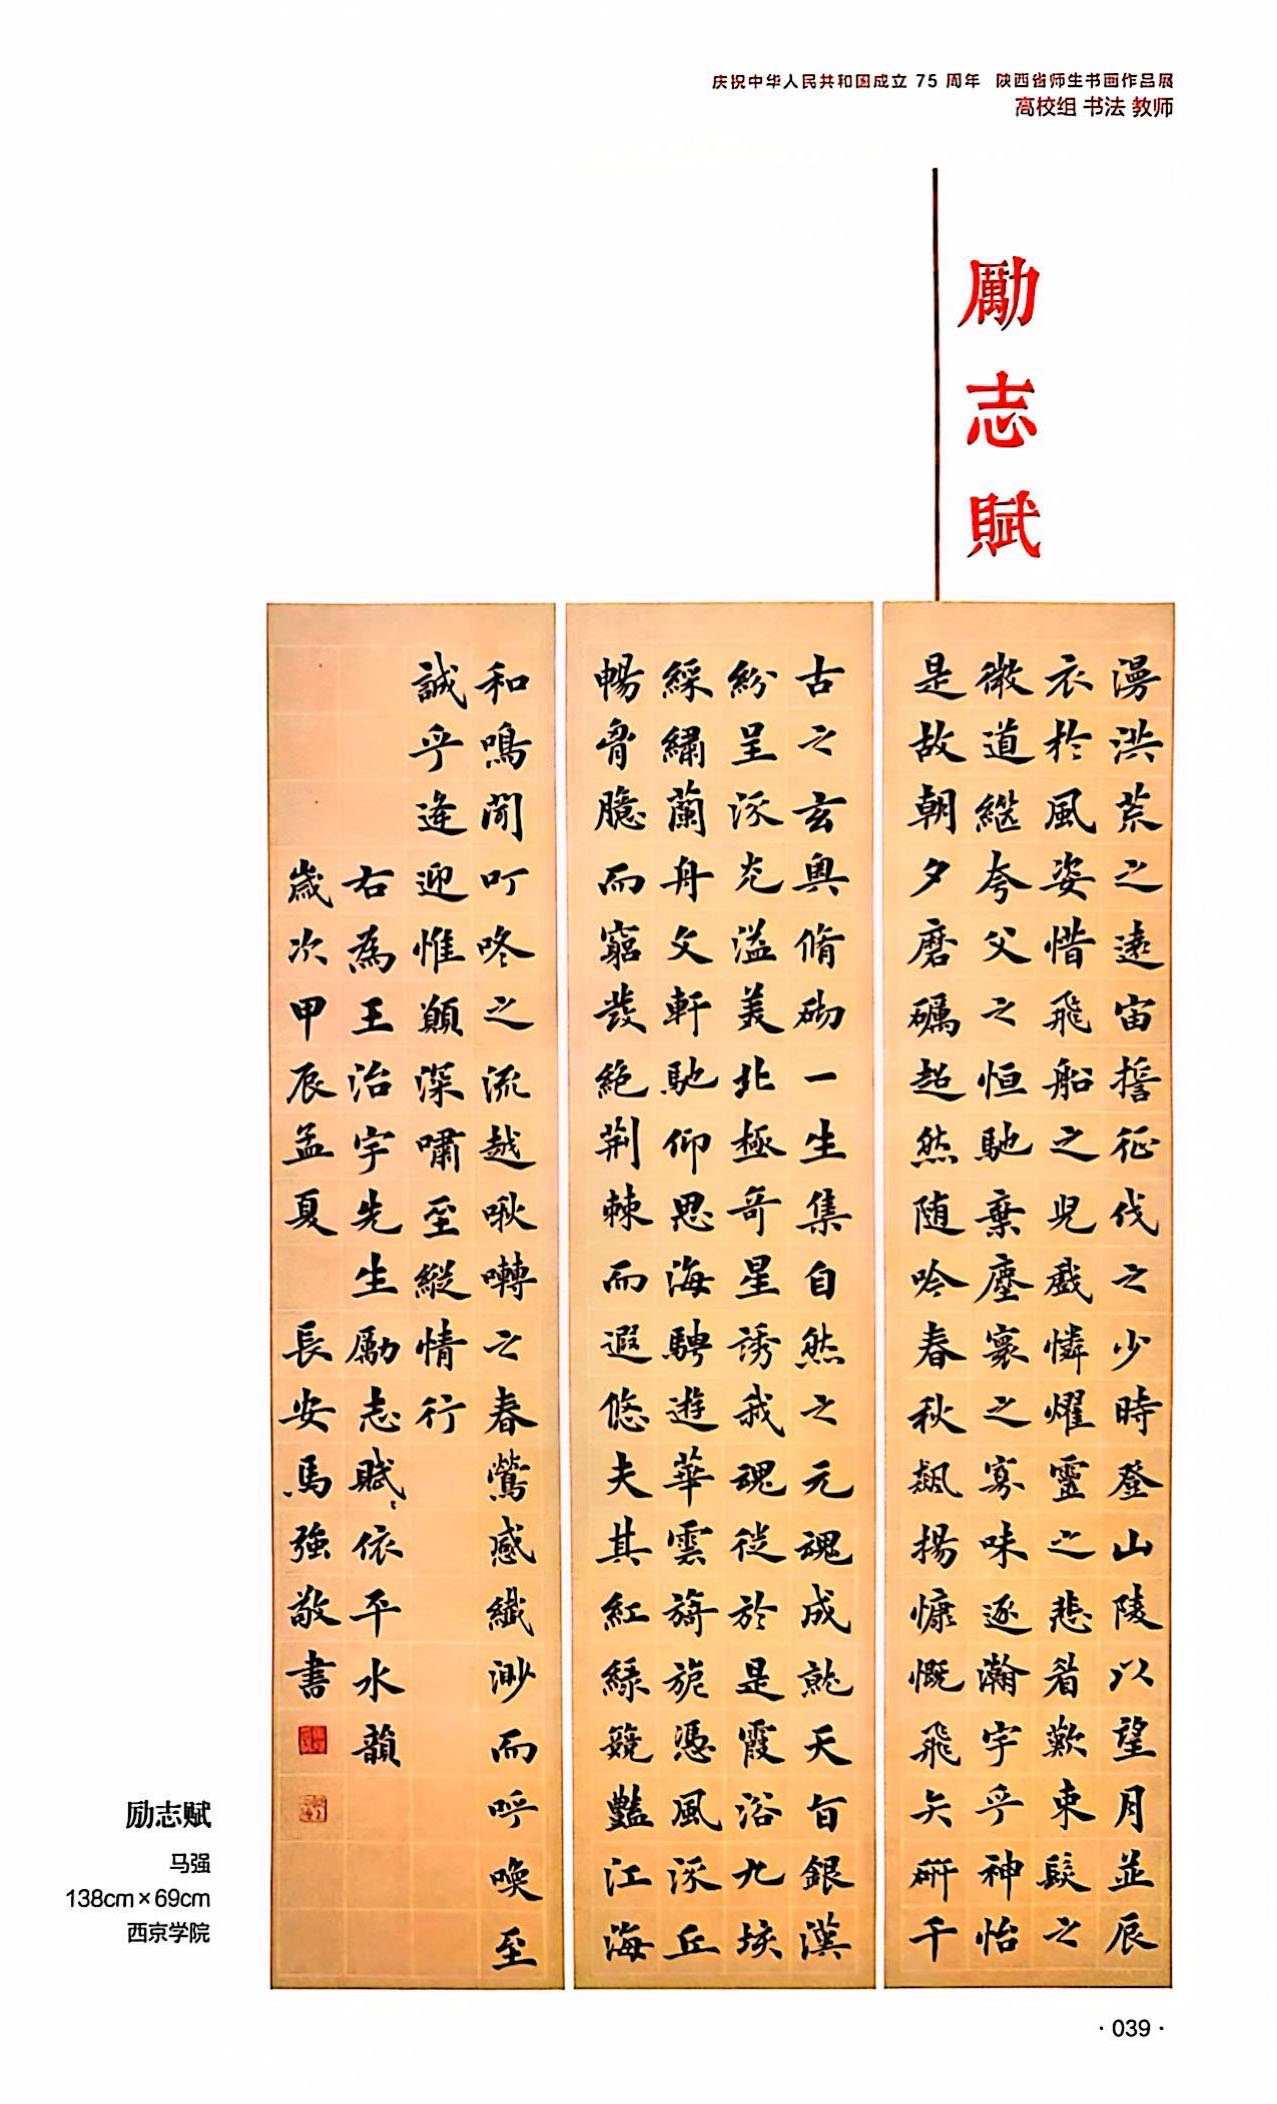 庆祝中华人民共和国成立 75 周年 陕西省师生书画作品展
高校组 书法 教师
勵志賦
漫洪荒之遠宙擔征伐之少時登山陵以望月並辰
衣於風姿惜飛船之児戲憐燿靈之悲着歎束髮之
微道繼夸父之恒馳棄塵寰之寡味逐瀚宇乎神怡
是故朝夕磨礪超然随吟春秋飙揚慷慨飛矢研千
古之玄奥脩砌一生集自然之元魂成就天旨銀漢
紛呈涿光溢美北極奇星誘我魂從於是霞浴九垓
綵繡蘭舟文軒馳仰思海騁遊華雲旖旎憑風涿丘
暢胷臆而窮發絶荆棘而遐悠夫其紅緑競豔江海
和鳴閒叮咚之流越啾囀之春鶯感纖渺而呼喚至
誠乎逢迎惟顛深嘯至縱情行
右為王治宇先生勵志賦依平水韻
歲次甲辰孟夏 長安馬強敬書
励志赋
马强
138cm×69cm
西京学院
·039·